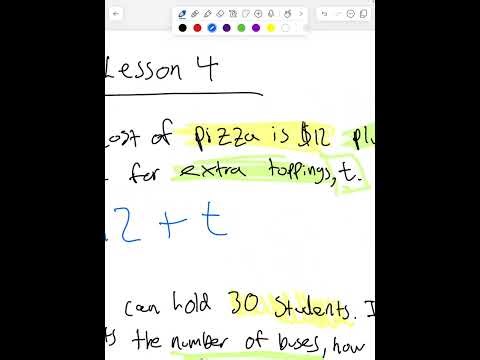 Lesson 4
cost of pizza is $12 plu
for extra toppings, t.
12 + t
can hold 30 students. I
the number of buses, how